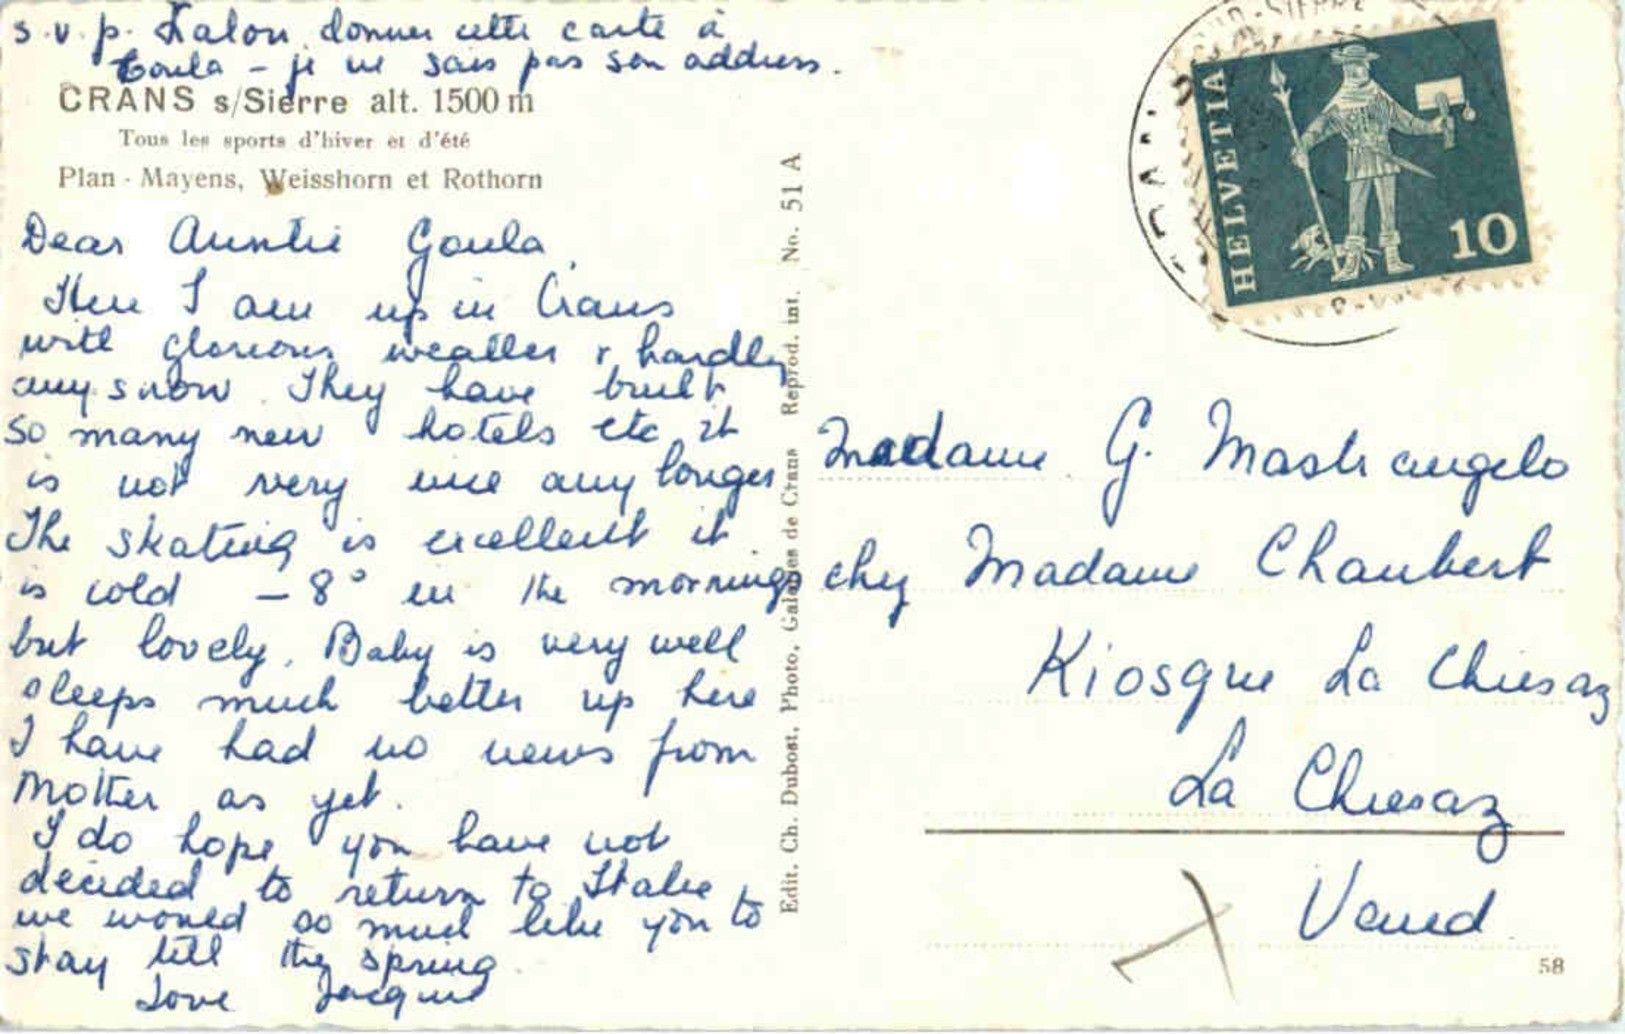 s.v.p. Lalou donner cette carte à
Goula - je ne sais pas son address.
CRANS s/Sierre alt. 1500 m
Tous les sports d'hiver et d'été
Plan - Mayens, Weisshorn et Rothorn
Dear Auntie Goula,
Here I am up in Crans
with glorious weather & hardly
any snow. They have built
so many new hotels etc it
is not very nice any longer
The skating is excellent it
is cold - 8° in the mornings
but lovely. Baby is very well
sleeps much better up here
I have had no news from
Mother as yet.
I do hope you have not
decided to return to Italie
we would so much like you to
stay till the spring
Love Jacquie
Edit. Ch. Dubost, Photo, Galeries de Crans Reprod. int. No. 51 A
HELVETIA
10
Madame G. Mastrangelo
chez Madame Chaubert
Kiosque La Chiesaz
La Chiesaz
Vaud
58